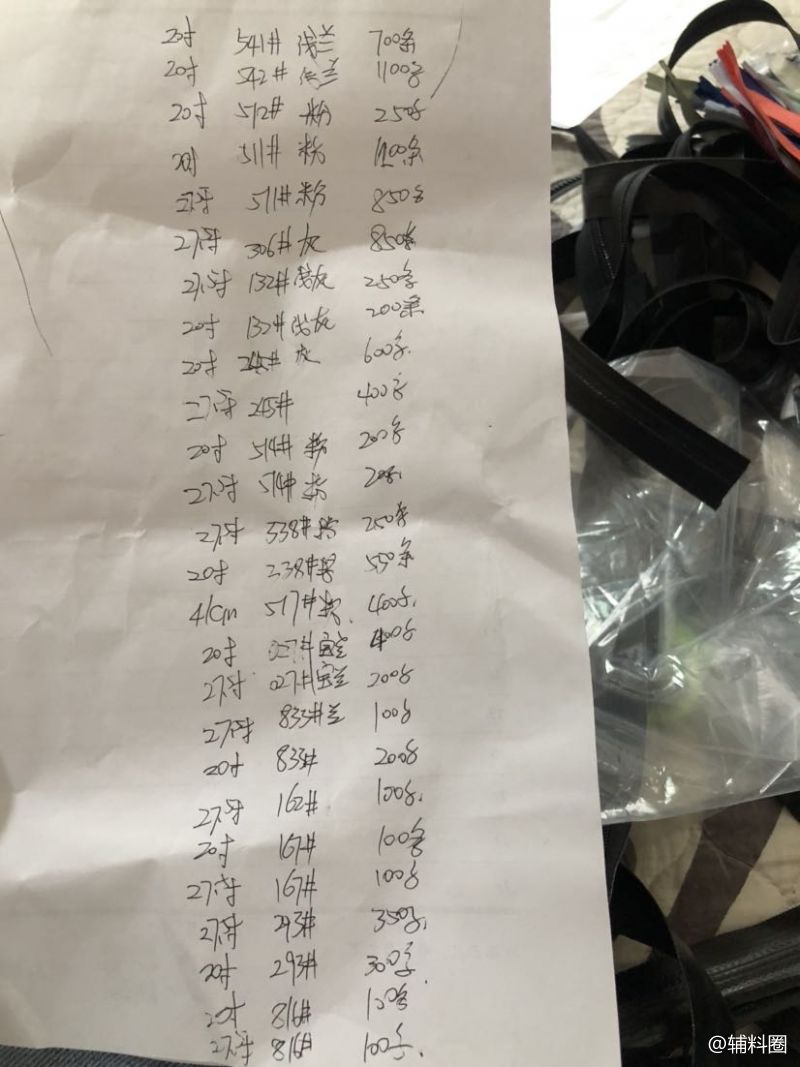 20寸 541# 浅兰 700条
20寸 542# 浅兰 1100条
20寸 512# 粉 250条
20寸 511# 粉 1200条
27.5寸 511# 粉 850条
27.5寸 306# 灰 850条
27.5寸 132# 浅灰 250条
20寸 132# 浅灰 200条
20寸 245# 灰 600条
27.5寸 245# 400条
20寸 514# 粉 200条
27.5寸 514# 粉 200条
27.5寸 338# 250条
20寸 338# 550条
41cm 517# 400条
20寸 027# 宝兰 400条
27.5寸 027# 宝兰 200条
27.5寸 833# 兰 100条
20寸 833# 200条
27.5寸 162# 100条
20寸 167# 100条
27.5寸 167# 100条
27.5寸 293# 350条
20寸 293# 300条
20寸 816# 100条
27.5寸 816# 100条
@辅料圈